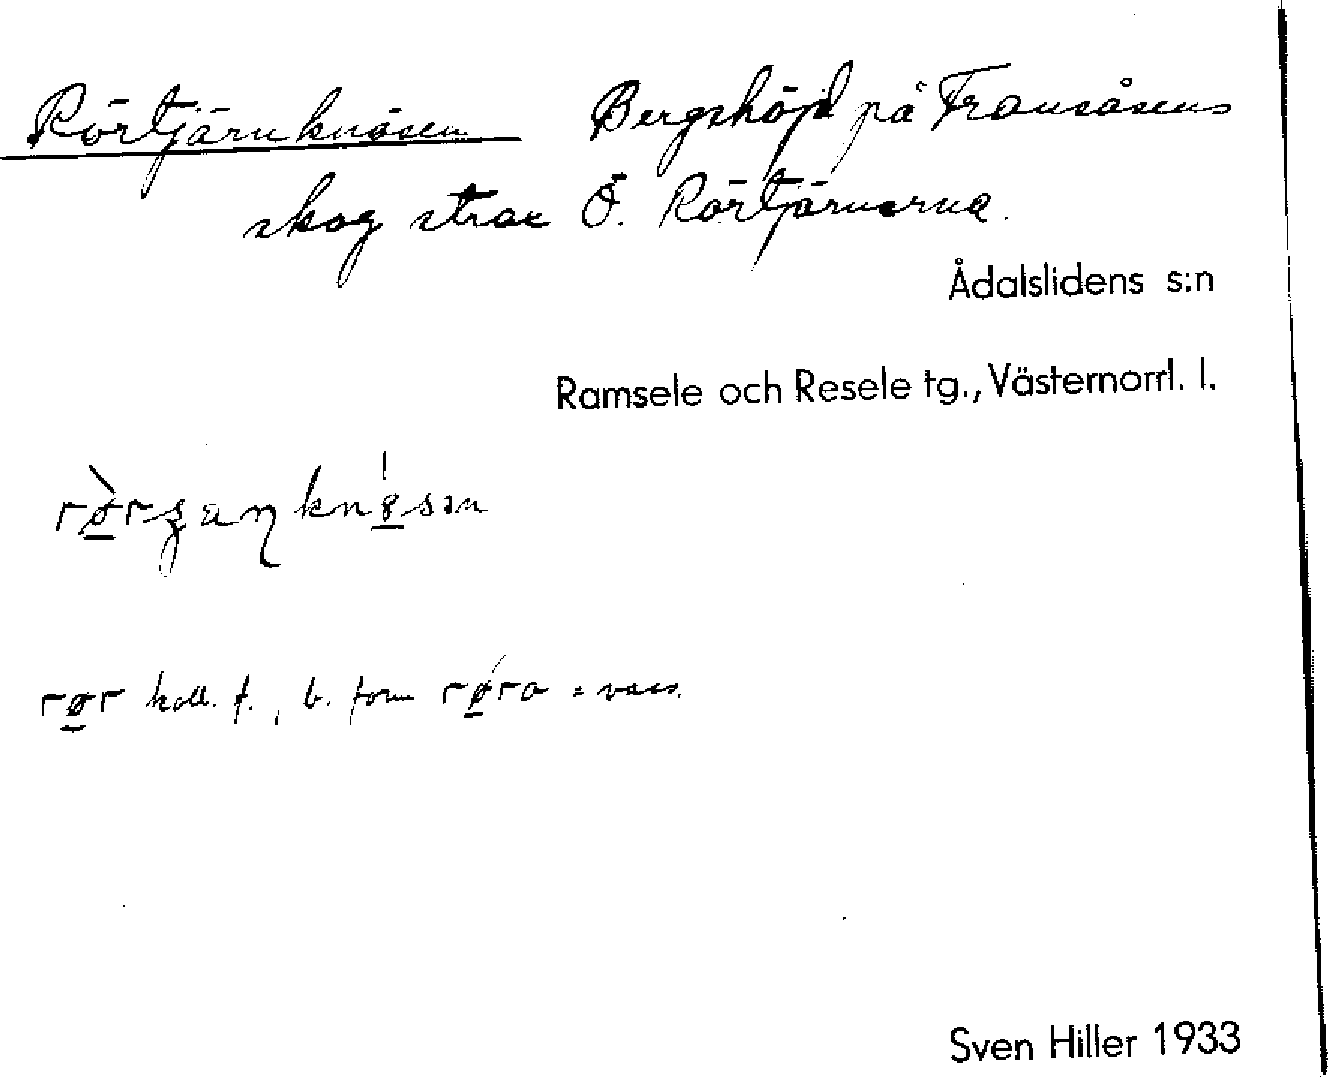 Rörtjärnknösen Bergshöjd på Transåsens
skog strax Ö. Rörtjärnarna.
Ådalslidens s:n
Ramsele och Resele tg., Västernorrl. l.
koll. f., b. form = vass.
Sven Hiller 1933